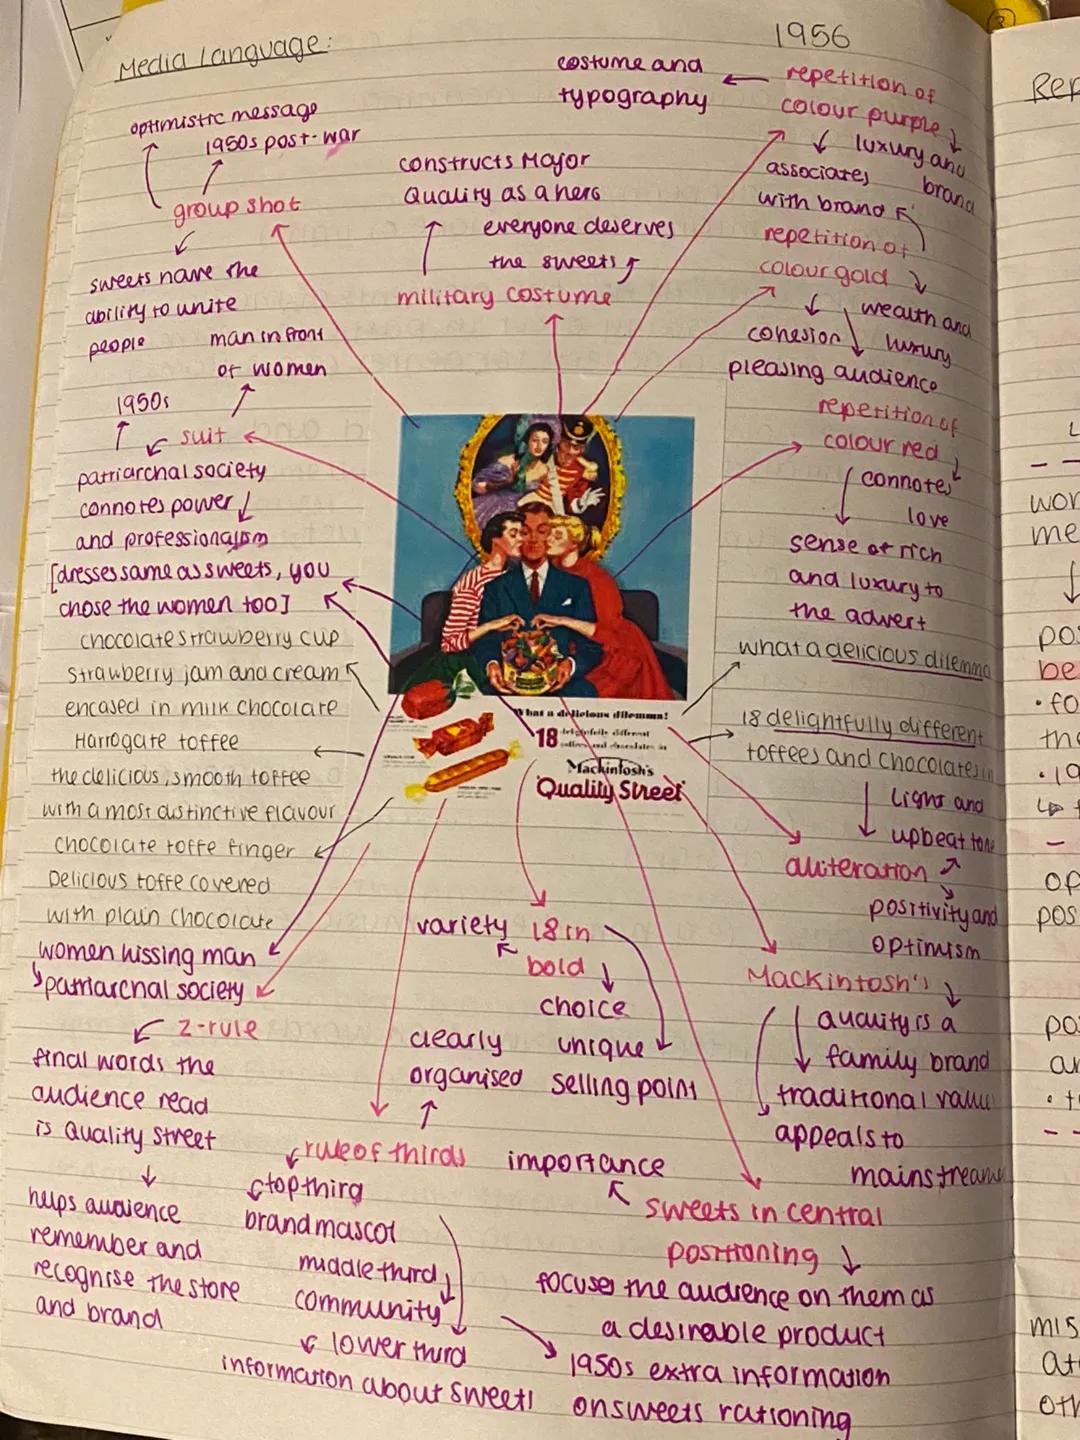 Media Language:
1956
optimistic message
1950s post-war
group shot
sweets have the
ability to unite
people
man in front
of women
1950s
suit
patriarchal society
connotes power
and professionalism
[dresses same as sweets, you
chose the women too]
chocolate strawberry cup
strawberry jam and cream
encased in milk chocolate
Harrogate toffee
the delicious, smooth toffee
with a most distinctive flavour
chocolate toffe finger
Delicious toffe covered
with plain chocolate
women kissing man
patriarchal society
z-rule
final words the
audience read
is Quality Street
helps audience
remember and
recognise the store
and brand
constructs Major
Quality as a hero
everyone deserves
the sweets
military costume
costume and
typography
repetition of
colour purple
luxury and
brand
associates
with brand
repetition of
colour gold
wealth and
luxury
cohesion
pleasing audience
repetition of
colour red
connotes
love
sense of rich
and luxury to
the advert
what a delicious dilemma
18 delightfully different
toffees and chocolates in
light and
upbeat tone
aliteration
positivity and
optimism
Mackintosh's
quality is a
family brand
traditional value
appeals to
mainstreame
What a delicious dilemma!
18 delightfully different
toffees and chocolates in
Mackintosh's
'Quality Street'
variety
18 in
bold
choice
unique
selling point
clearly
organised
rule of thirds
top third
brand mascot
middle third
community
lower third
information about sweets
importance
sweets in central
positioning
focuses the audience on them as
a desirable product
1950s extra information
on sweets rationing
Rep
wor
me
po
be
• fo
the
• 19
op
pos
po
ar
• t
mis
at
oth